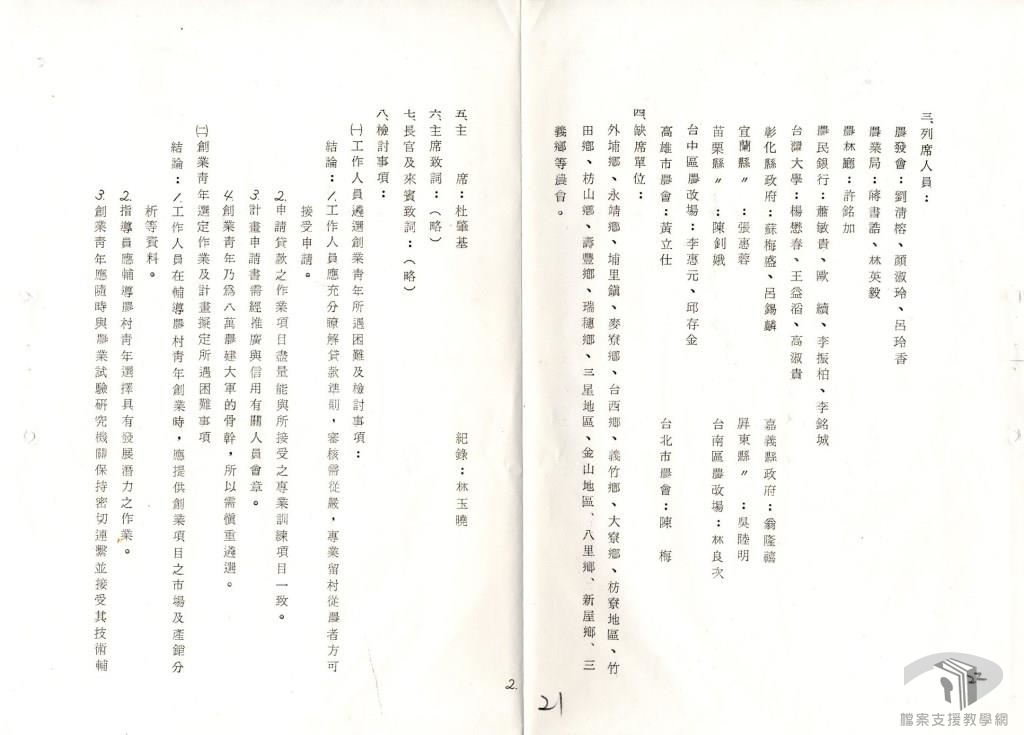 三、列席人員：
農發會：劉清榕、顏淑玲、呂玲香
農業局：蔣書皓、林英毅
農林廳：許銘加
農民銀行：蕭敏貴、歐　續、李振柏、李銘城
台灣大學：楊懋春、王益滔、高淑貴
彰化縣政府：蘇梅盛、呂錫麟　嘉義縣政府：翁隆禧
宜蘭縣〃　：張惠蓉　屏東縣〃　：吳陸明
苗栗縣〃　：陳釗娥　台南區農改場：林良次
台中區農改場：李惠元、邱存金
高雄市農會：黃立仕　台北市農會：陳　梅
四、缺席單位：
外埔鄉、永靖鄉、埔里鎮、麥寮鄉、台西鄉、義竹鄉、大寮鄉、枋寮地區、竹
田鄉、枋山鄉、壽豐鄉、瑞穗鄉、三星地區、金山地區、八里鄉、新屋鄉、三
義鄉等農會。
21
五、主　　席：杜肇基　紀錄：林玉曉
六、主席致詞：（略）
七、長官及來賓致詞：（略）
八、檢討事項：
㈠工作人員遴選創業青年所遇困難及檢討事項：
結論：1.工作人員應充分瞭解貸款準則，審核需從嚴，專業留村從農者方可
接受申請。
2.申請貸款之作業項目盡量能與所接受之專業訓練項目一致。
3.計畫申請書需經推廣與信用有關人員會章。
4.創業青年乃為八萬農建大軍的骨幹，所以需慎重遴選。
㈡創業青年選定作業及計畫擬定所遇困難事項
結論：1.工作人員在輔導農村青年創業時，應提供創業項目之市場及產銷分
析等資料。
2.指導員應輔導農村青年選擇具有發展潛力之作業。
3.創業青年應隨時與農業試驗研究機關保持密切連繫並接受其技術輔
2.
22
檔案支援教學網